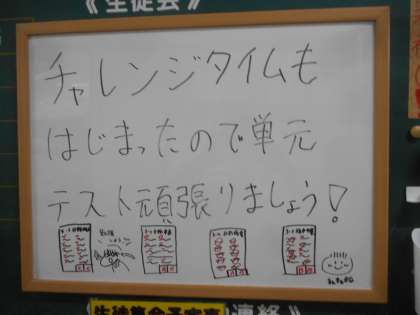 《生徒会》
チャレンジタイムも
はじまったので単元
テスト頑張りましょう！
連絡》